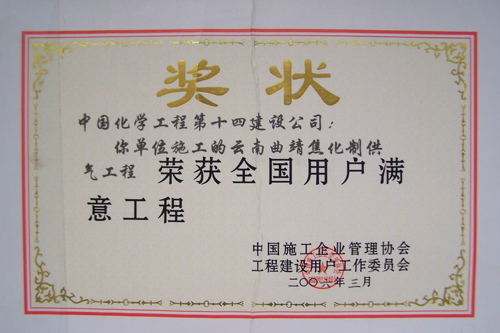 奖状
中国化学工程第十四建设公司：
你单位施工的云南曲靖焦化制供
气工程 荣获全国用户满
意工程
中国施工企业管理协会
工程建设用户工作委员会
二〇〇六年三月